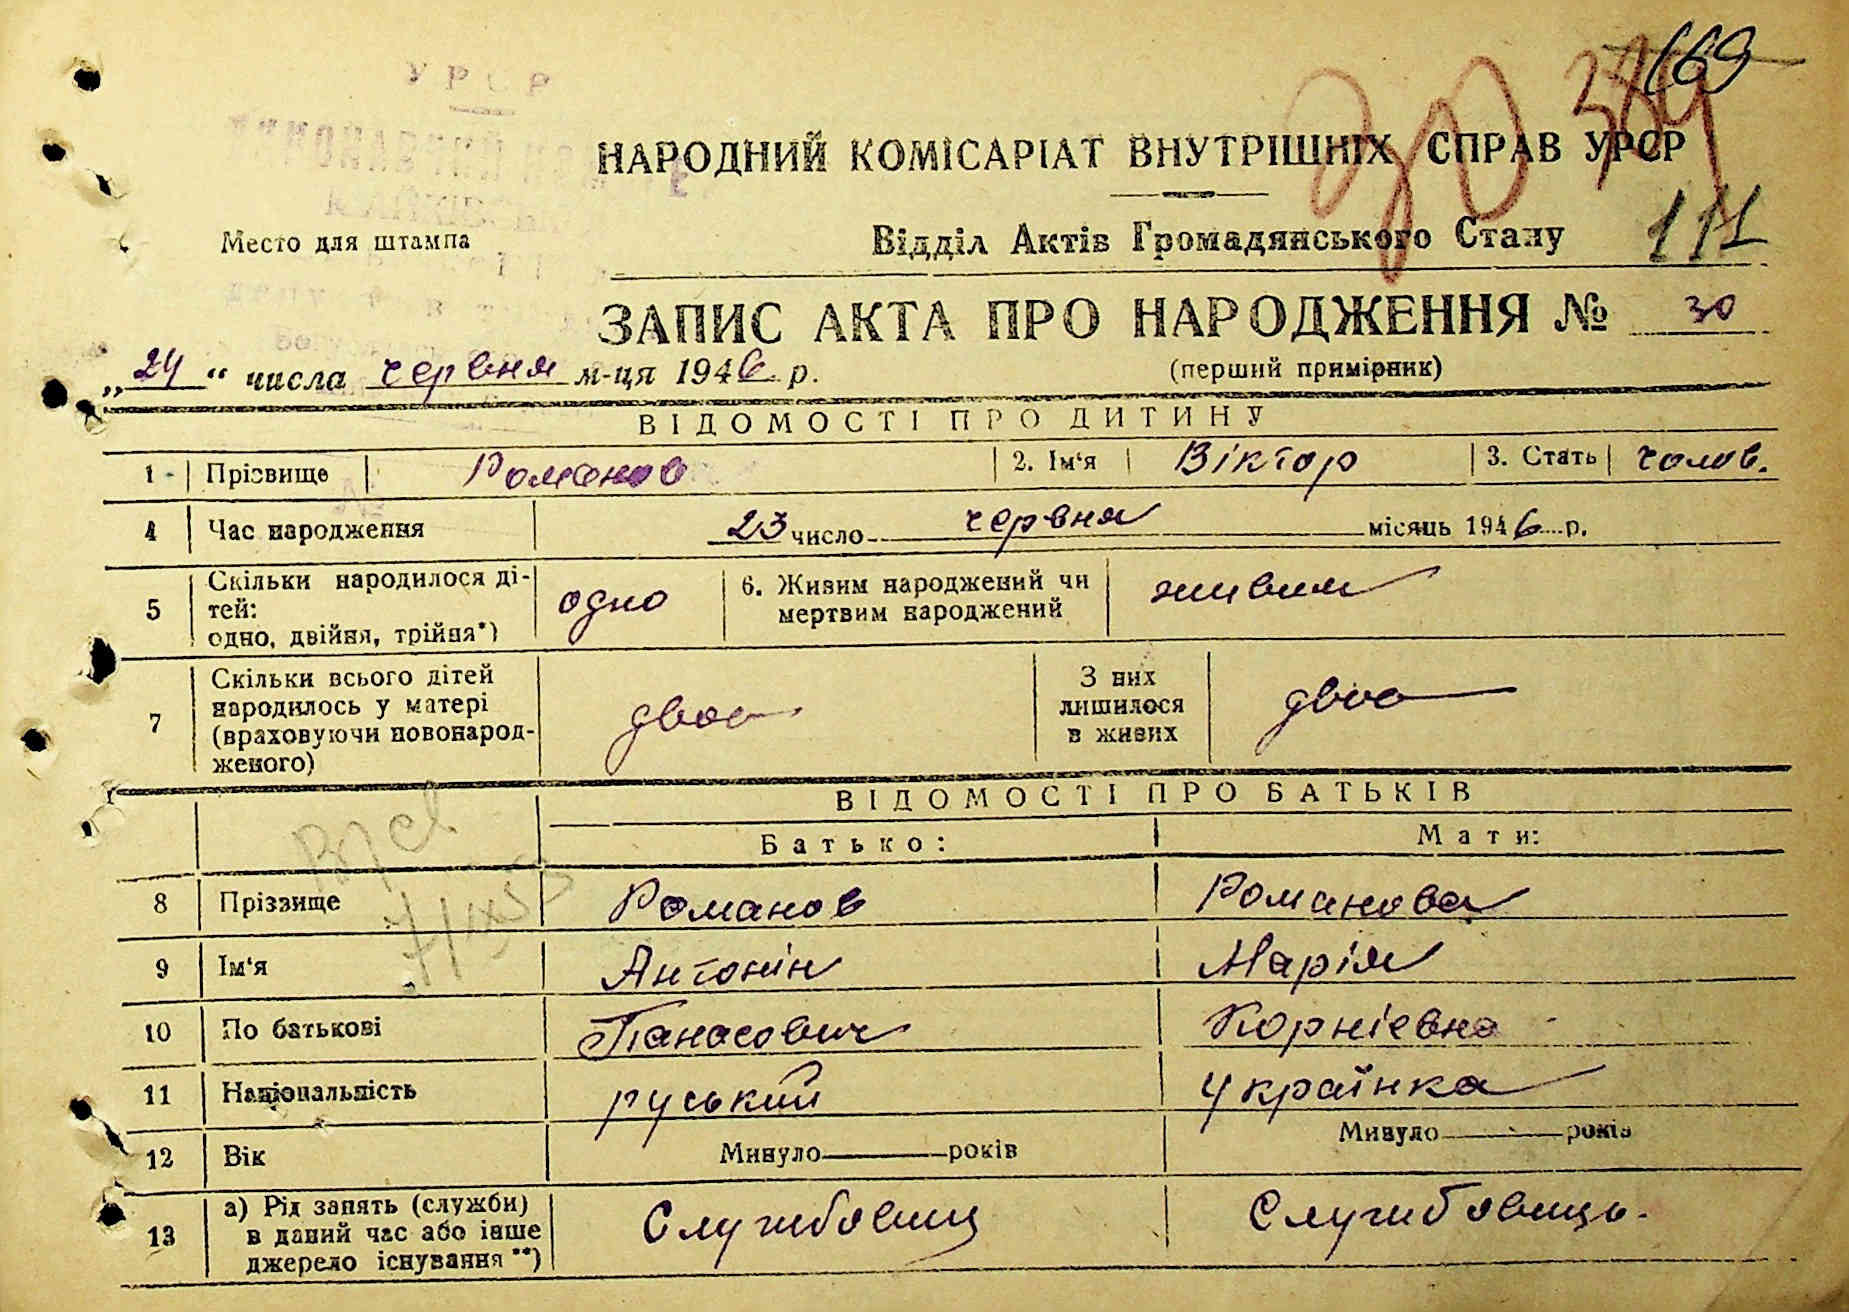 УРСР
169
30 379
НАРОДНИЙ КОМІСАРІАТ ВНУТРІШНІХ СПРАВ УРСР
Место для штампа
Відділ Актів Громадянського Стану
111
ЗАПИС АКТА ПРО НАРОДЖЕННЯ № 30
(перший примірник)
„24“ числа червня м-ця 1946 р.
ВІДОМОСТІ ПРО ДИТИНУ
1 Прізвище Романов 2. Ім'я Віктор 3. Стать чолов.
4 Час народження 23 число червня місяць 1946 р.
5 Скільки народилося ді-
тей:
одно, двійня, трійня*)
одно
6. Живим народжений чи
мертвим народжений
живим
7 Скільки всього дітей
народилось у матері
(враховуючи новонарод-
женого)
двоє
З них
лишилося
в живих
двоє
ВІДОМОСТІ ПРО БАТЬКІВ
Батько: Мати:
8 Прізвище Романов Романова
9 Ім'я Антонін Марія
10 По батькові Панасович Корніевна
11 Національність руський Українка
12 Вік Минуло років Минуло років
13 а) Рід занять (служби)
в даний час або інше
джерело існування**)
Службовиц Службовиць.